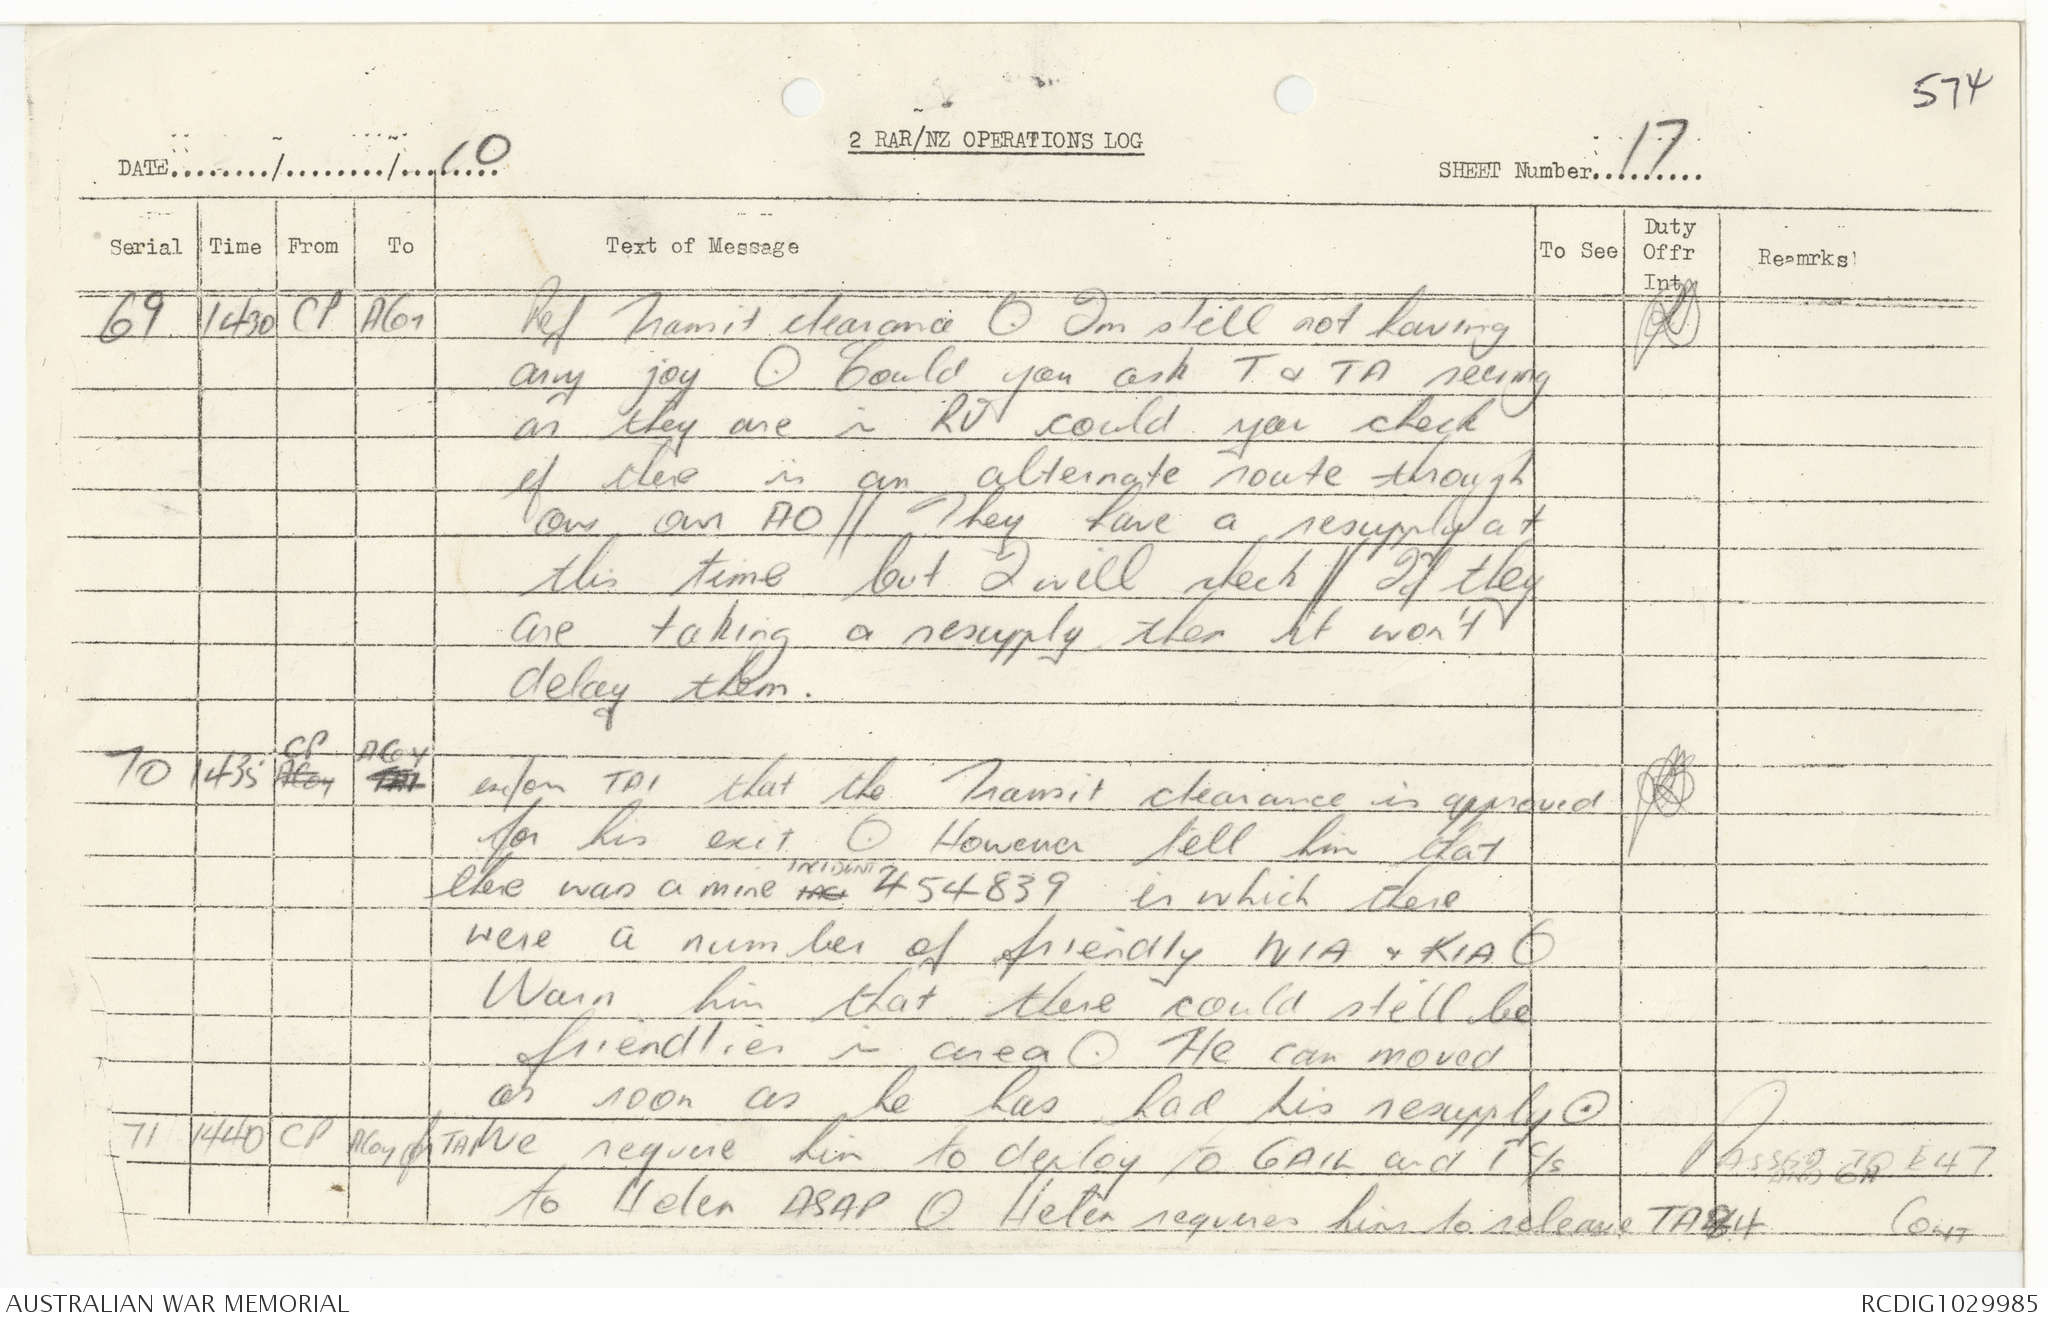 574
2 RAR/NZ OPERATIONS LOG
DATE......../......../...70
SHEET Number...17......
Serial Time From To Text of Message To See Duty Offr Int Reamrks
69 1430 CP ACoy Ref Transit clearance O Im still not having
any joy O Could you ask T & TA seeing
as they are in RV could you check
if there is an alternate route through
our own AO // They have a resupply at
this time but I will check // If they
are taking a resupply then it won't
delay them.
CP ACoy
70 1435 ACoy TA1 inform TA1 that the Transit clearance is approved
for his exit O However tell him that
there was a mine INCIDENT 454839 in which there
were a number of friendly WIA & KIA O
Warn him that there could still be
friendlies in area O He can moved
as soon as he has had his resupply O
71 1440 CP ACoy for TA1 We require him to deploy to GAIL and T C/s
to Helen ASAP O Helen requires him to release TA
Cont
AUSTRALIAN WAR MEMORIAL
RCDIG1029985